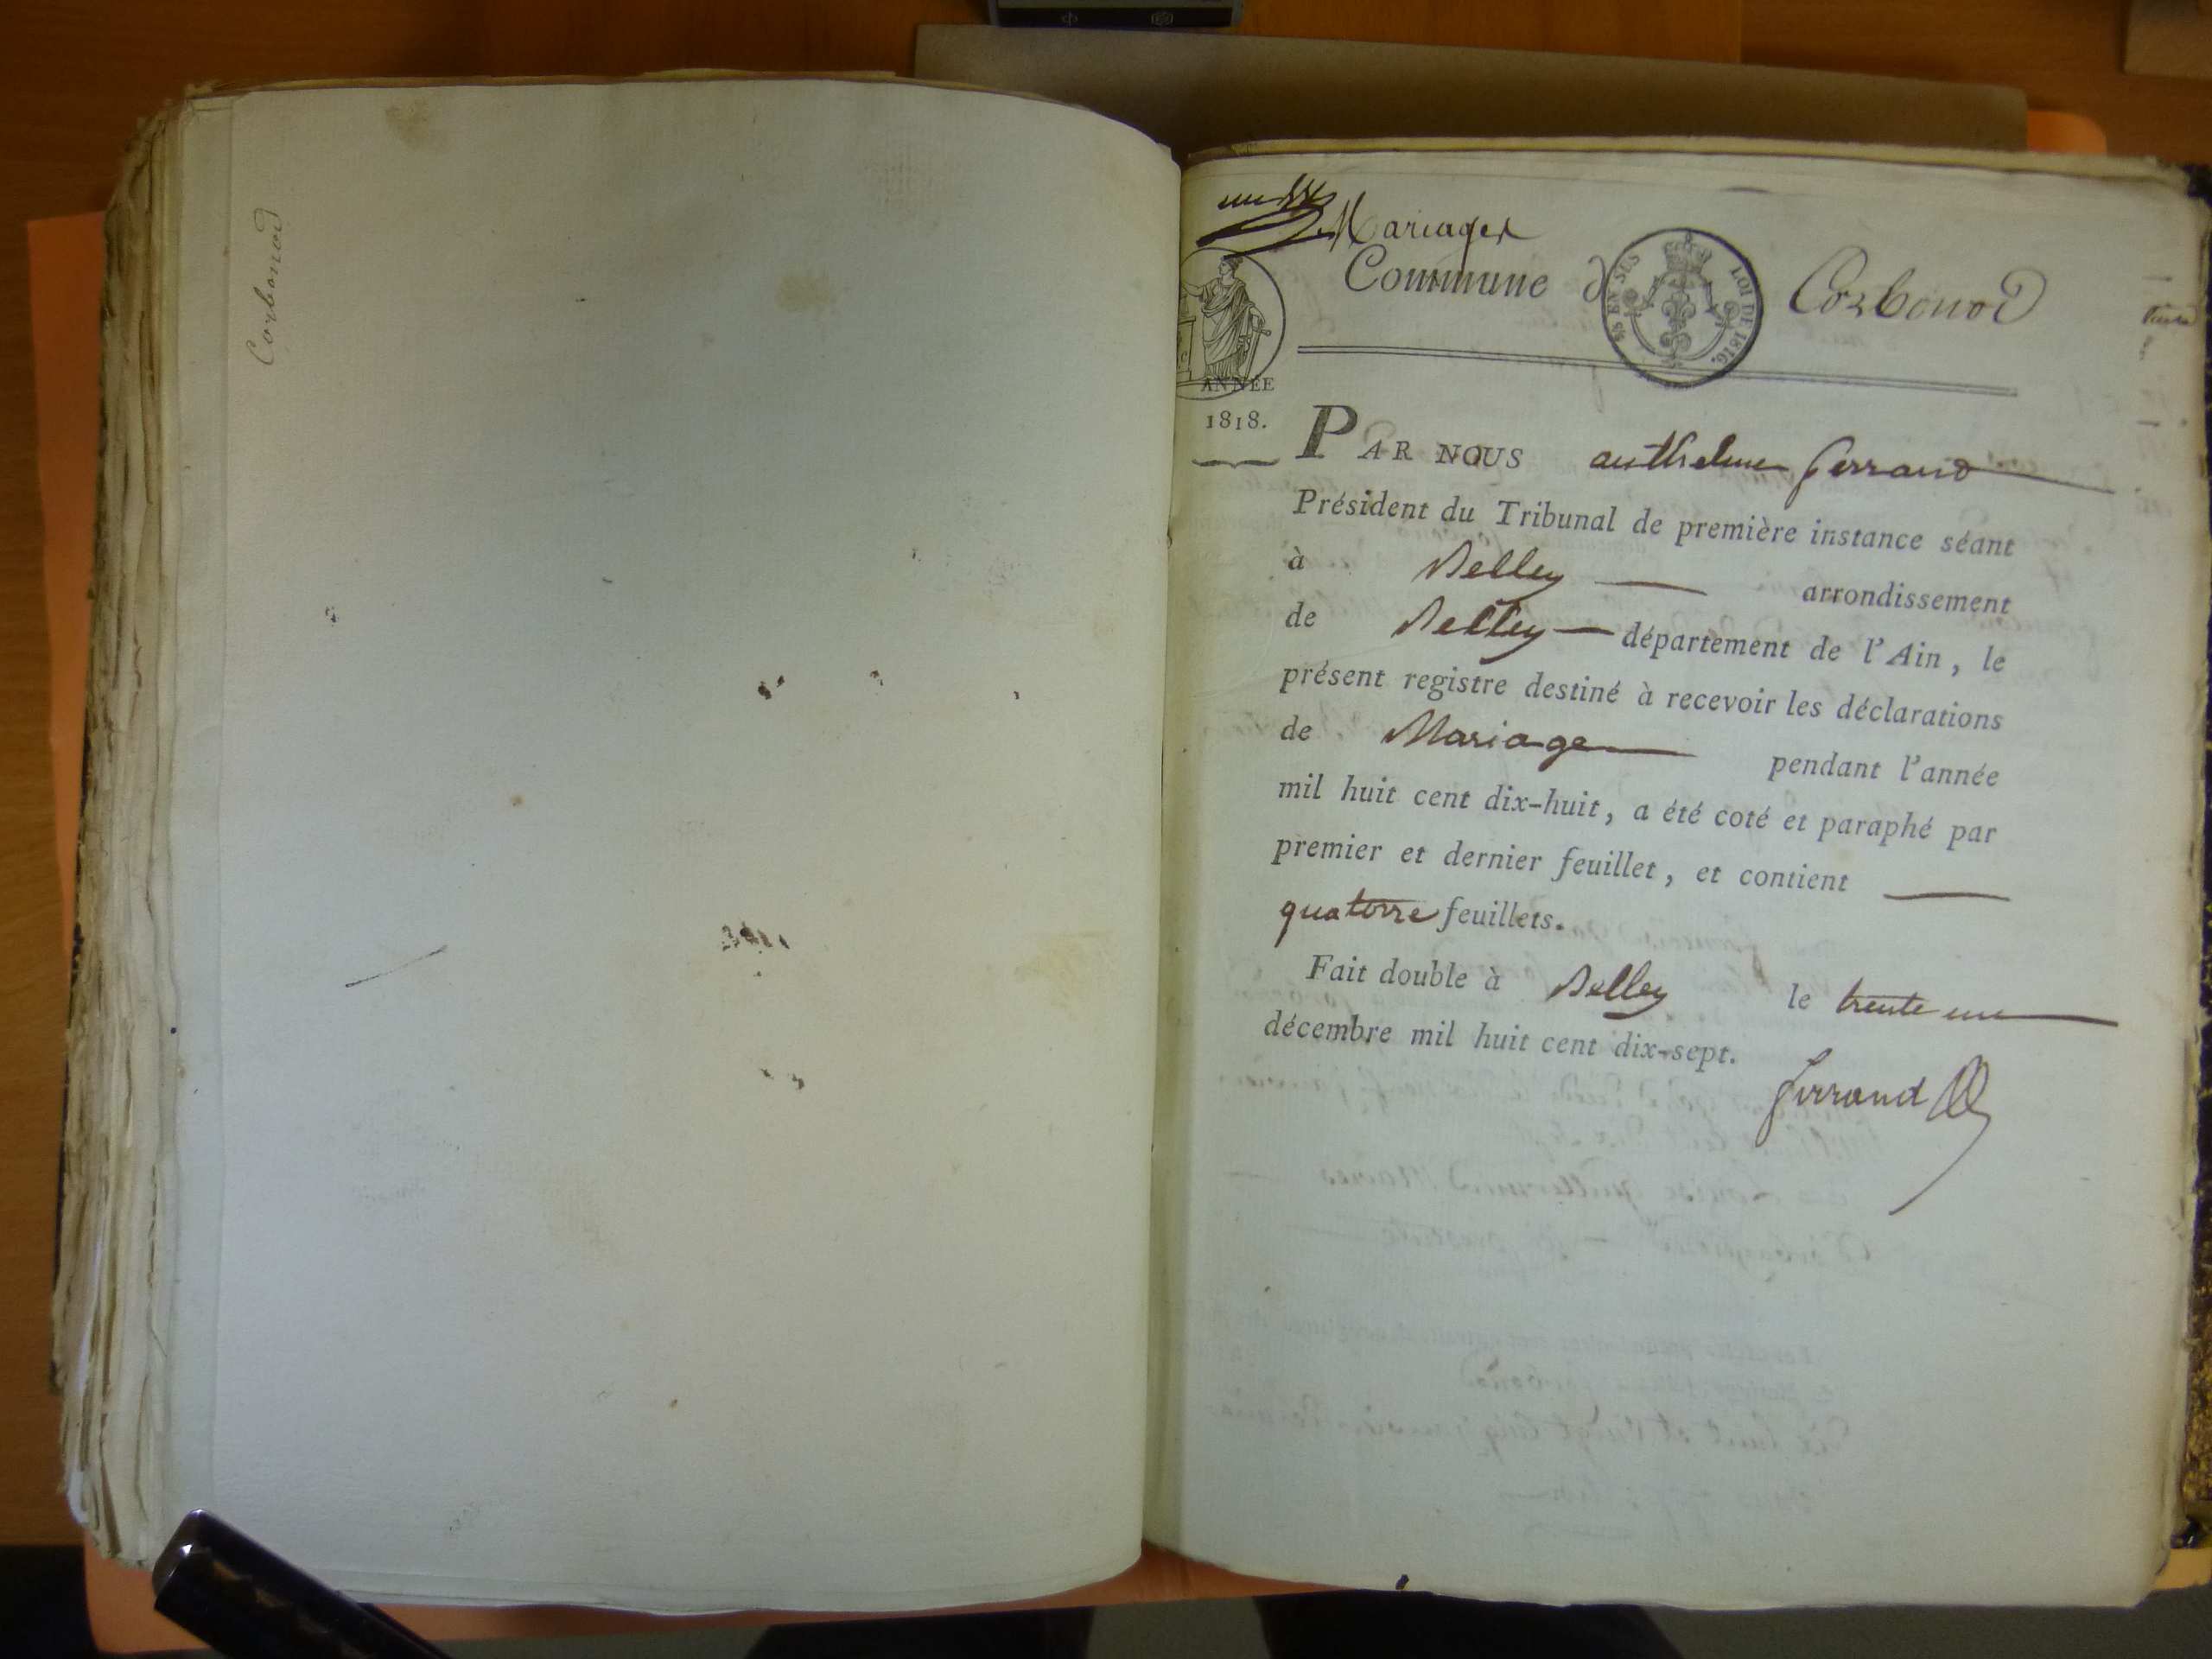 Corbonod
Mariages
Commune d
Corbonod
EN SUS
LOI DE 1816.
ANNÉE
1818.
PAR NOUS anthelme ferrand
Président du Tribunal de première instance séant
à Belley arrondissement
de Belley département de l'Ain, le
présent registre destiné à recevoir les déclarations
de Mariage pendant l'année
mil huit cent dix-huit, a été coté et paraphé par
premier et dernier feuillet, et contient
quatorze feuillets.
Fait double à Belley le trente un
décembre mil huit cent dix-sept.
ferrand